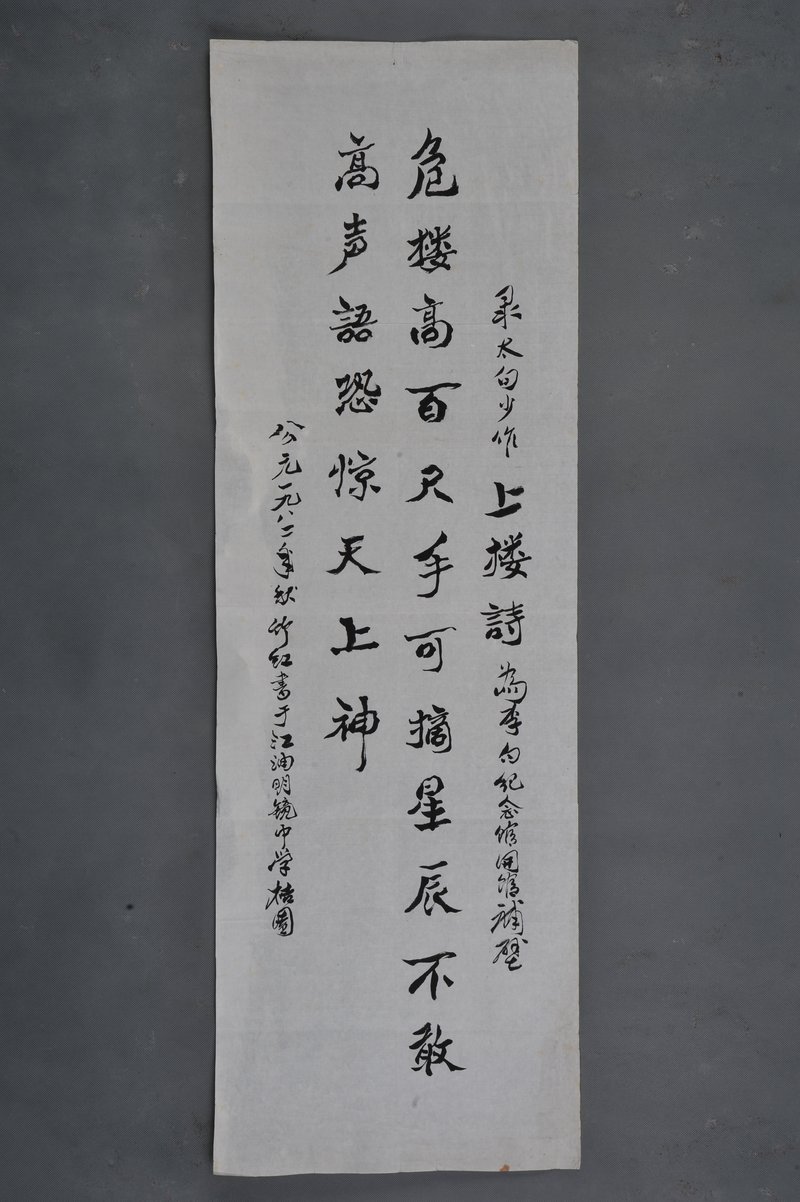 录太白少作上楼詩為李白纪念馆开馆補壁
危楼高百尺手可摘星辰不敢
高声語恐惊天上神
公元一九八二年秋竹红書于江油明镜中学桔園